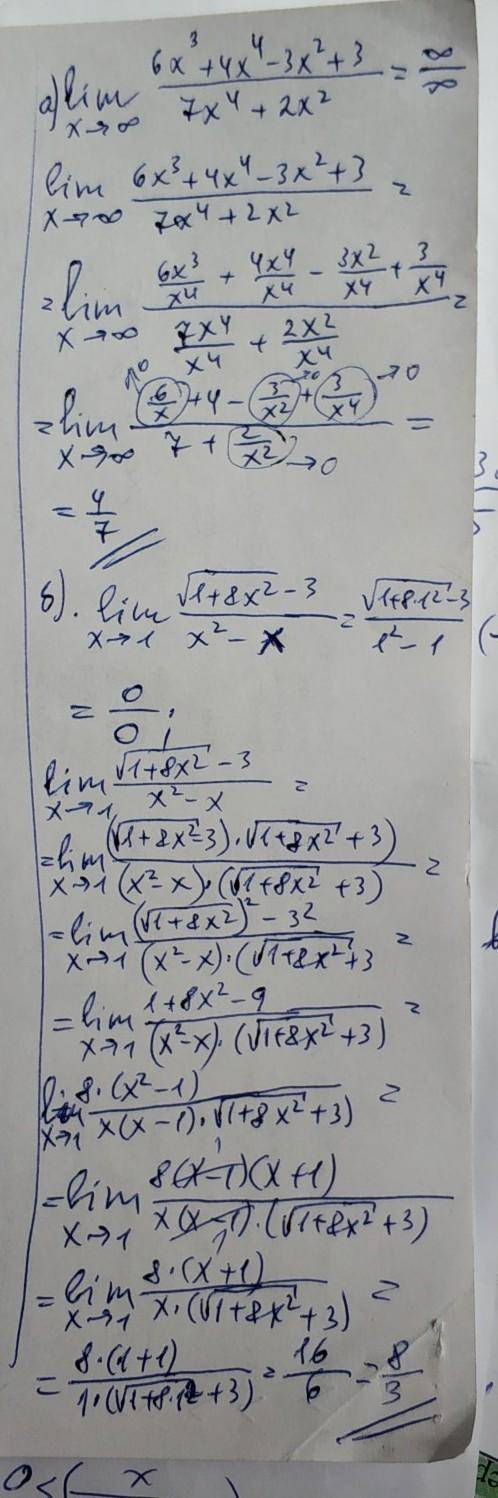 а) lim x→∞ (6x³+4x⁴-3x²+3)/(7x⁴+2x²) = ∞/∞
lim x→∞ (6x³+4x⁴-3x²+3)/(7x⁴+2x²) =
= lim x→∞ (6x³/x⁴ + 4x⁴/x⁴ - 3x²/x⁴ + 3/x⁴)/(7x⁴/x⁴ + 2x²/x⁴) =
= lim x→∞ (6/x →0 + 4 - 3/x² →0 + 3/x⁴ →0)/(7 + 2/x² →0) =
= 4/7
б). lim x→1 (√(1+8x²)-3)/(x²-x) = (√(1+8·1²)-3)/(1²-1)
= 0/0 ;
lim x→1 (√(1+8x²)-3)/(x²-x) =
= lim x→1 (√(1+8x²)-3)·√(1+8x²)+3)/(x²-x)·(√(1+8x²)+3) =
= lim x→1 (√(1+8x²))²-3²/(x²-x)·(√(1+8x²)+3 =
= lim x→1 (1+8x²-9)/(x²-x)·(√(1+8x²)+3) =
lim x→1 8·(x²-1)/x(x-1)·√(1+8x²)+3) =
= lim x→1 8(x-1)(x+1)/x(x-1)·(√(1+8x²)+3)
= lim x→1 8·(x+1)/x·(√(1+8x²)+3) =
= 8·(1+1)/1·(√(1+8·1²)+3) = 16/6 = 8/3
0<( x )